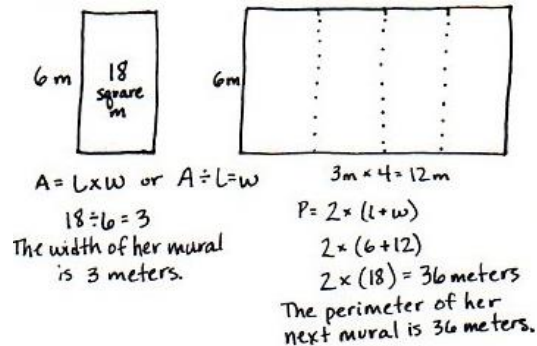 6 m
18
square
m
6m
A = L x w or A ÷ L = w
18 ÷ 6 = 3
The width of her mural
is 3 meters.
3m x 4 = 12 m
P = 2 x (l + w)
2 x (6 + 12)
2 x (18) = 36 meters
The perimeter of her
next mural is 36 meters.